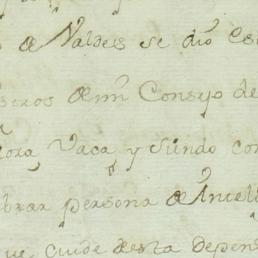 de Valdes se dio Es
eros de mi Consejo de
ora, Vaca, y siendo con
brar persona de Inteli
que cuide desta Depen